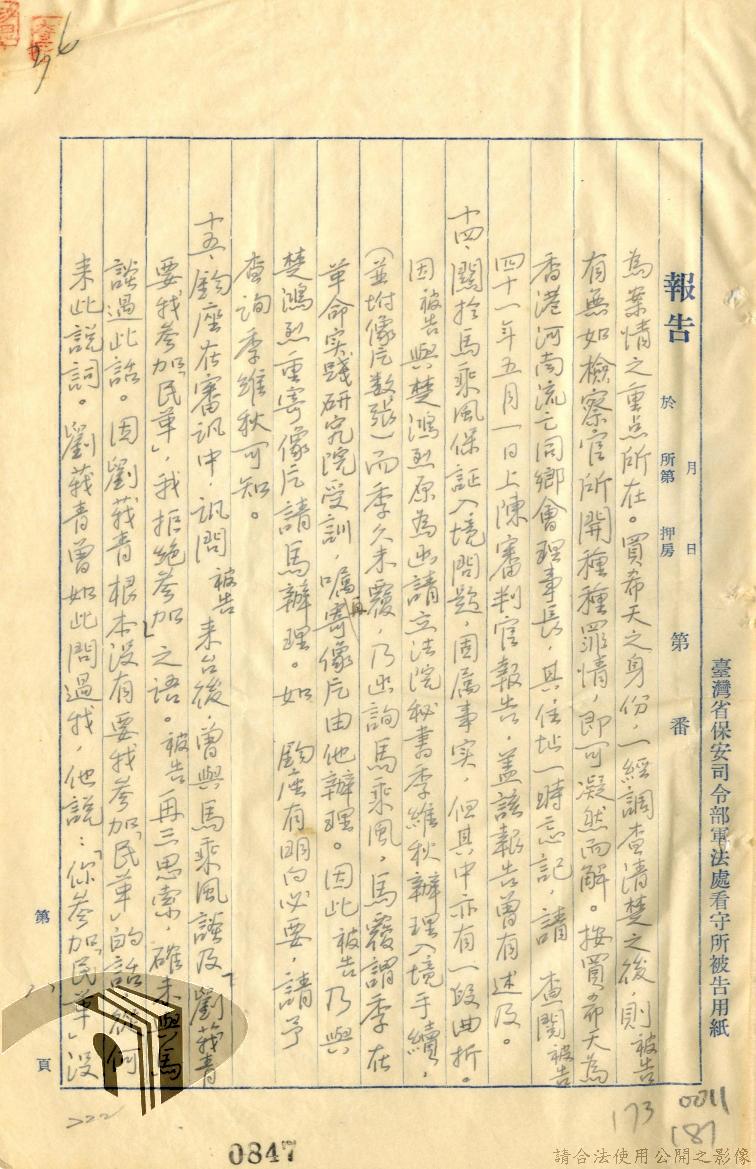 臺灣省保安司令部軍法處看守所被告用紙
報告
月 日
於 所第 押房
第 番
為案情之重点所在。買希天之身份,一經調查清楚之後,則被告
有無如檢察官所開種種罪情,即可凝然而解。按買希天為
香港河南流亡同鄉會理事長,其住址一時忘記,請 查閱被告
四十一年五月一日上陳審判官報告,蓋該報告曾有述及。
十四、關於馬乘風保証入境問題,固属事实,但其中亦有一段曲折。
因被告與楚鴻烈原為函請立法院秘書季維秋辦理入境手續,
(並坿像片数張)而季久未覆,乃函詢馬乘風,馬覆謂季在
革命实踐研究院受訓,嘱再寄像片由他辦理。因此被告乃與
楚鴻烈重寄像片請馬辦理。如 鈞座有明白必要,請予
查詢季維秋可知。
十五、鈞座在審訊中,訊問被告來台後,曾與馬乘風談及「劉莪青
要我參加「民革」,我拒絶參加」之語。被告再三思索,確未與馬
談過此話。因劉莪青根本没有要我參加「民革」的話,從何
来此説詞。劉莪青曾如此問過我,他説:「你參加「民革」没
第 八 頁
222
0847
173
0011
187
請合法使用公開之影像